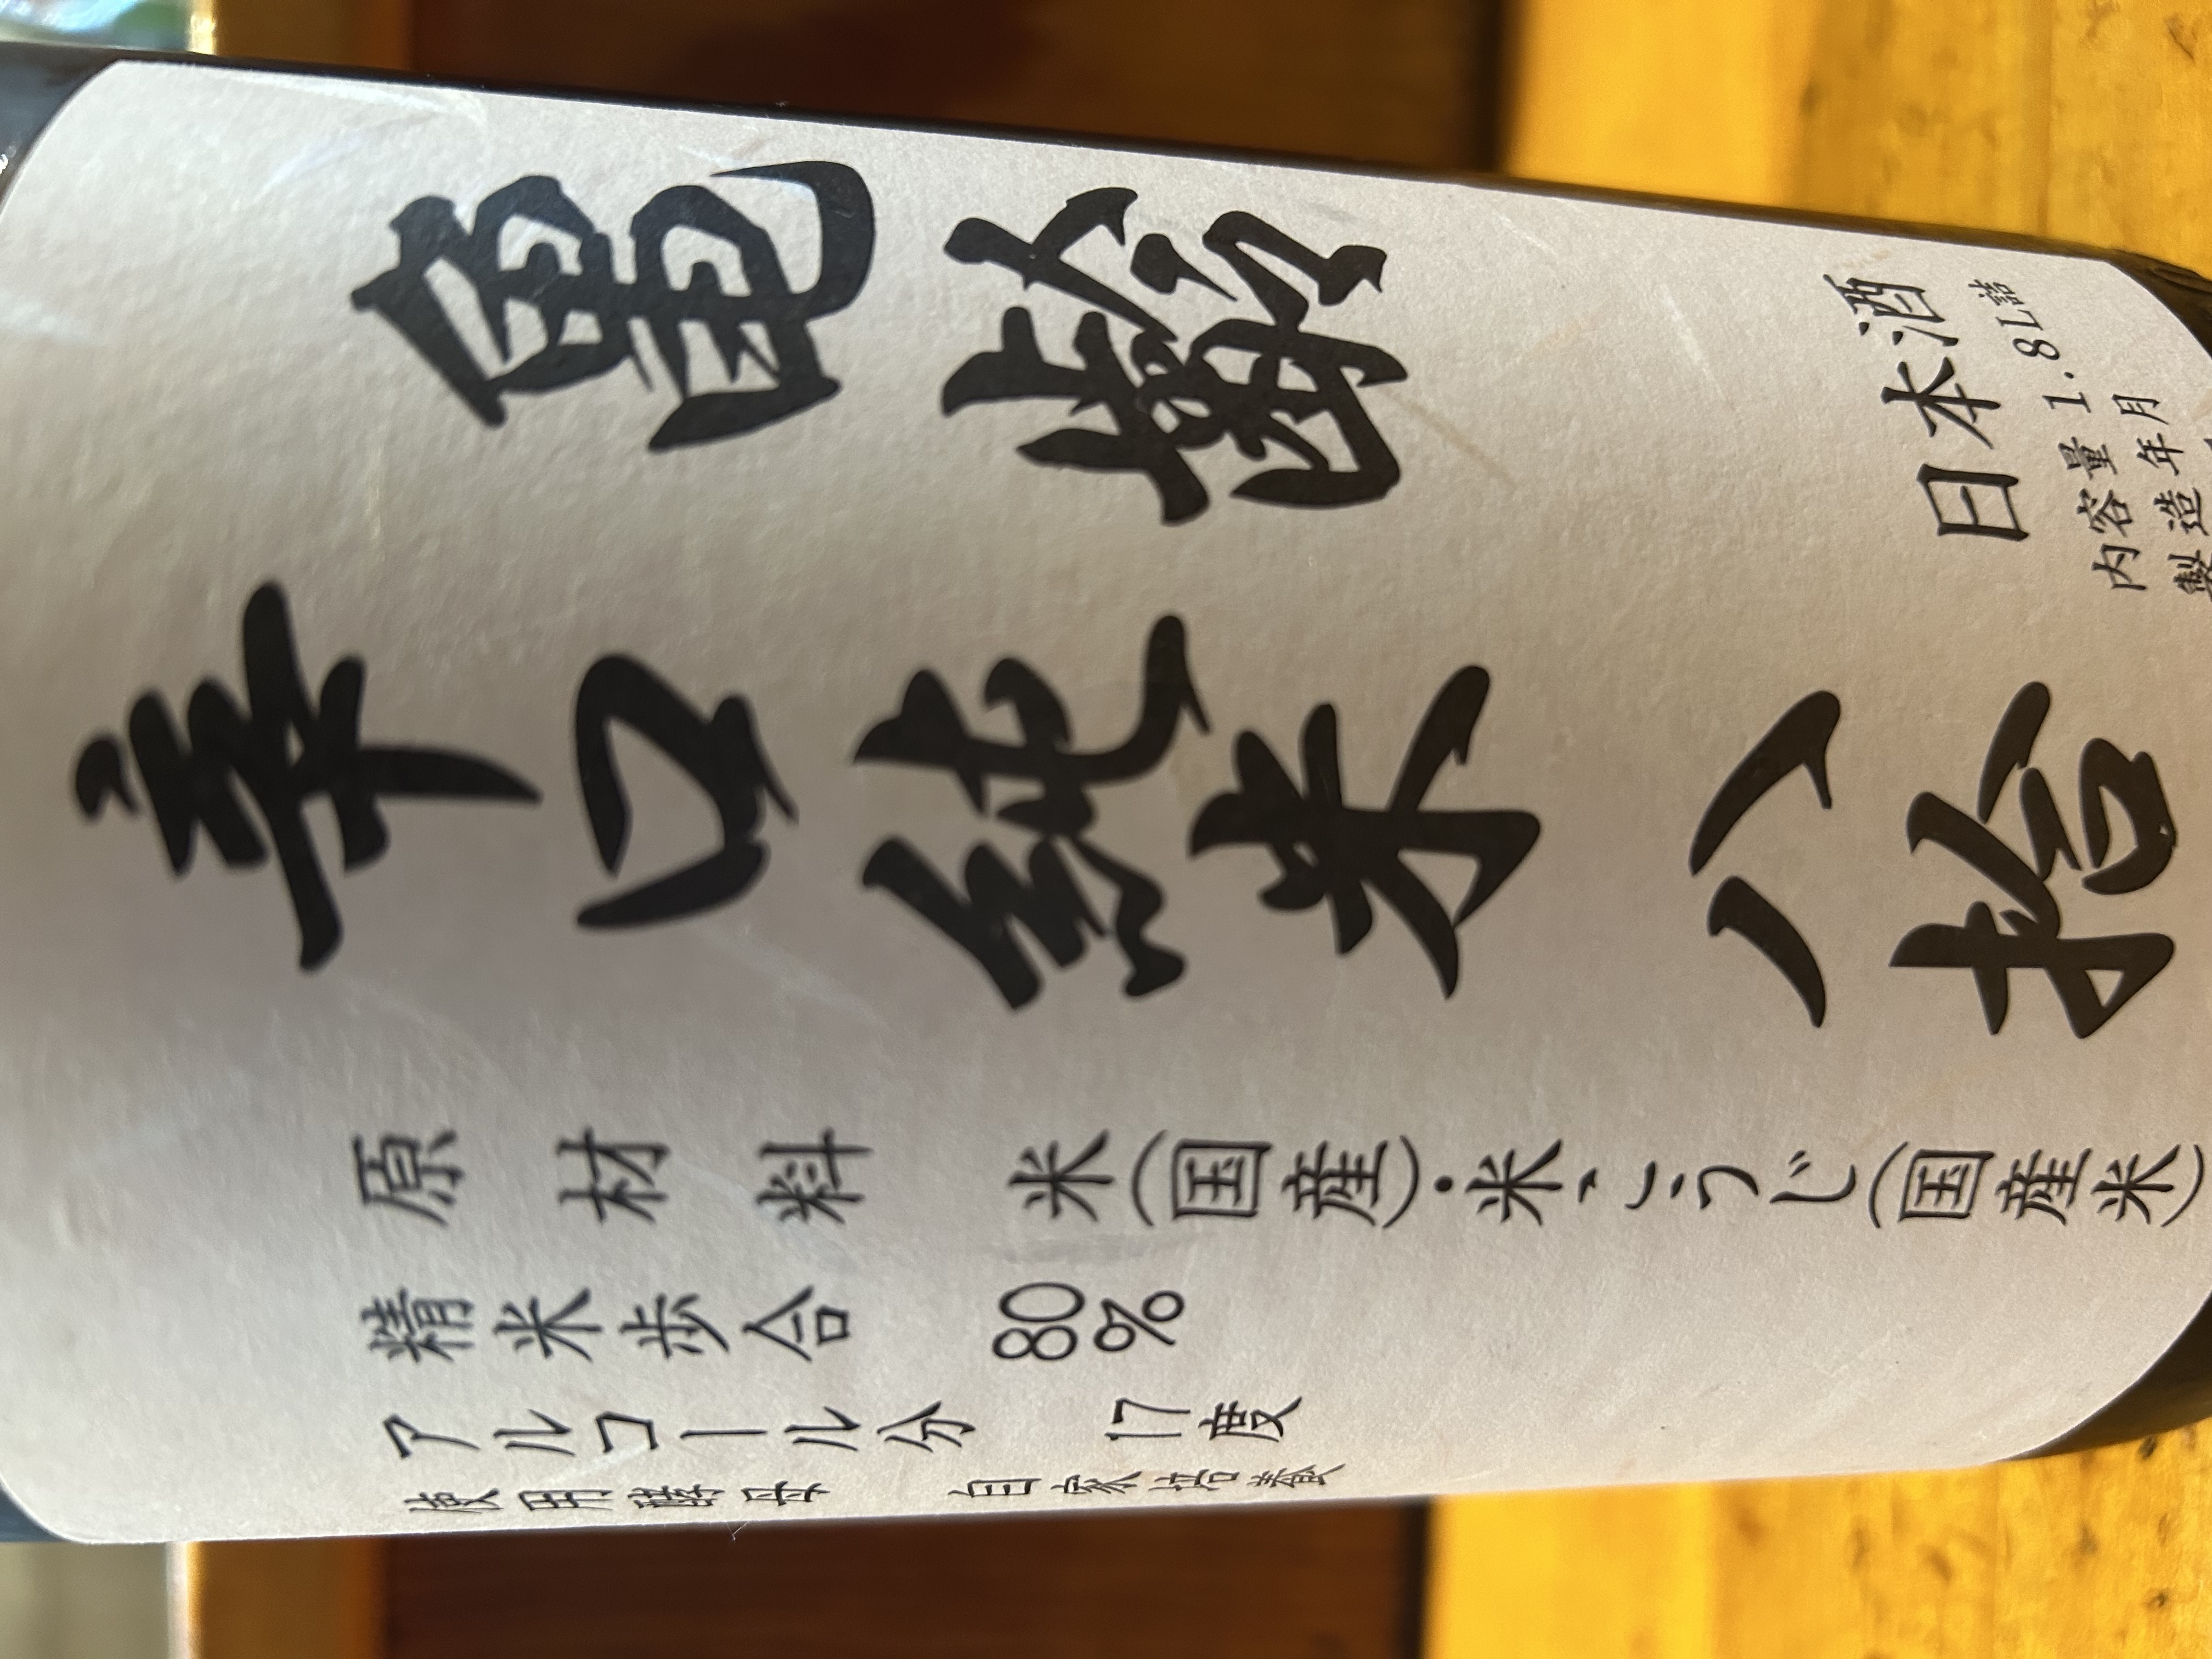 亀齢
日本酒
内容量 1.8L詰
製造年月
辛口純米 八拾
原材料 米(国産)・米こうじ(国産米)
精米歩合 80%
アルコール分 17度
使用酵母 自家培養